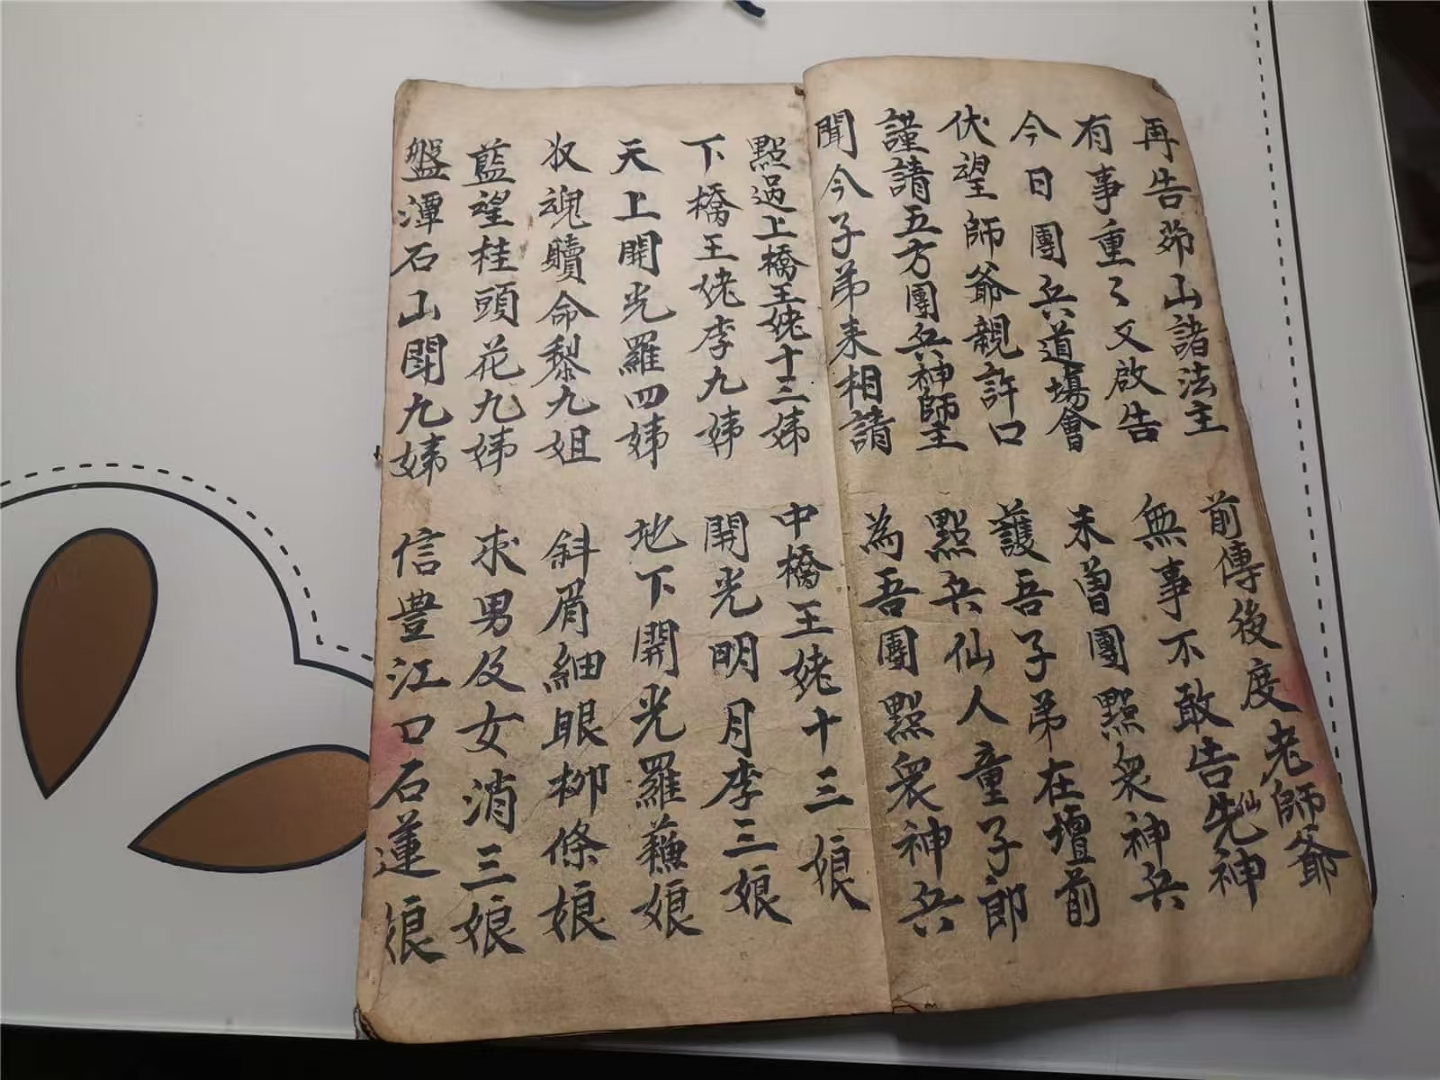 再告茆山諸法主　前傳後度老師爺
有事重〻又啟告　無事不敢告先仙神
今日團兵道場會　未曾團點衆神兵
伏望師爺親許口　護吾子弟在壇前
謹請五方團兵神師主　點兵仙人童子郎
聞今子弟来相請　為吾團點衆神兵
點過上橋王姥十三娣　中橋王姥十三娘
下橋王姥李九娣　開光明月李三娘
天上開光羅四娣　地下開光羅蘓娘
收魂贖命黎九姐　斜眉細眼柳條娘
藍望桂頭花九娣　求男及女消三娘
盤潭石山聞九娣　信豊江口石蓮娘